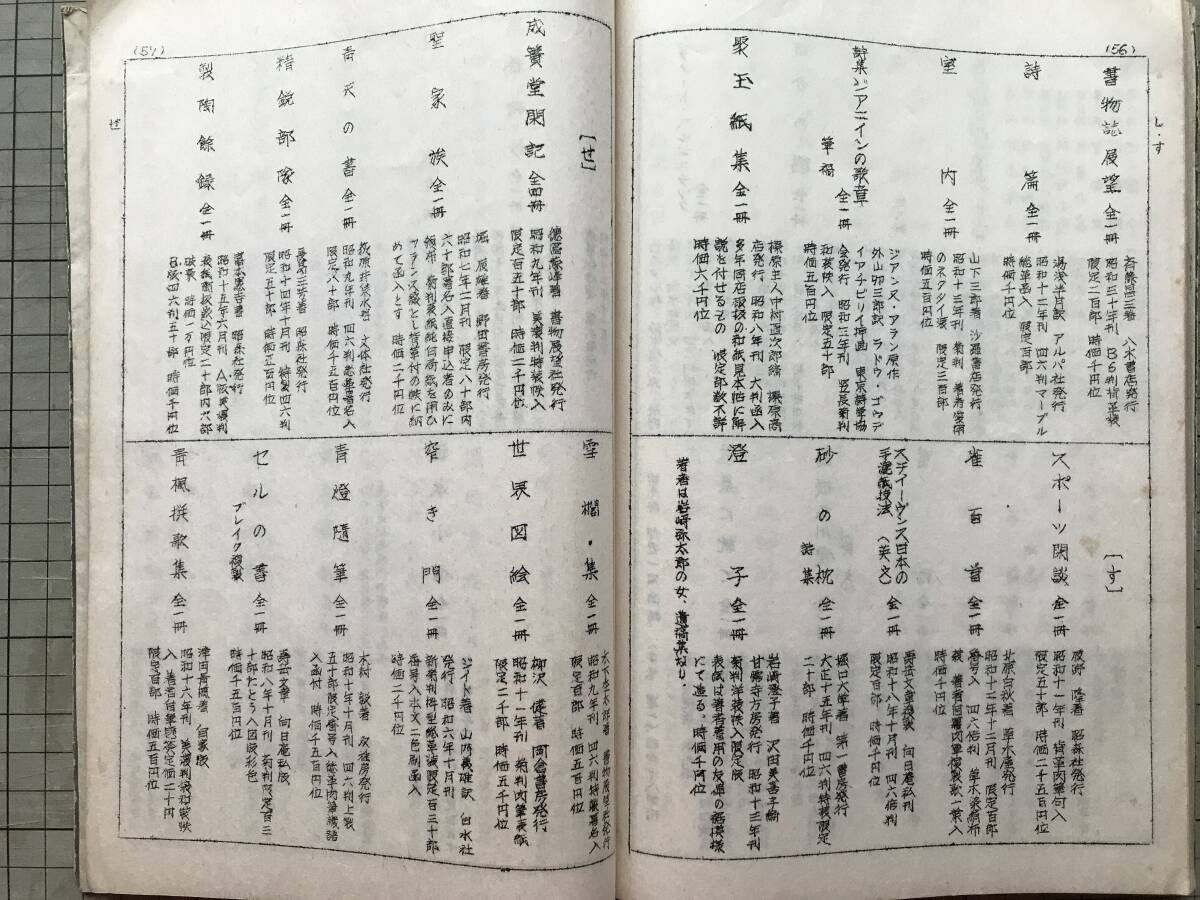 (56)
し・す
書物誌展望 全一冊
斉藤昌三著 八木書店発行
昭和三十年刊 B6判背革装
限定二百部 時価千円位
詩篇 全一冊
湯浅半月訳 アルパ社発行
昭和十二年刊 四六判マーブル
総革函入 限定百部
時価千円位
室内 全一冊
山下三郎著 沙羅書店発行
昭和十三年刊 菊判 著者愛用
のネクタイ装 限定三百部
時価五百円位
詩集ジアニインの歌章 全一冊
筆禍
ジアンヌ・アラン原作
外山卯三郎訳 ラドウ・ゴウデ
イアチビリイ挿画 東京詩学協
会発行 昭和三年刊 竪長菊判
和装帙入 限定五十部
時価五百円位
聚玉紙集 全一冊
榛原主人中村直次郎編 榛原商
店発行 昭和八年刊 大判函入
多年同店扱の和紙見本帖に解
説を付せるもの 限定部数不詳
時価六千円位
[す]
スポーツ閑談 全一冊
昭森社発行
昭和十一年刊 背革肉筆句入
限定五十部 時価二千五百円位
雀百首 全一冊
北原白秋著 草木屋発行
昭和十二年十二月刊 限定百部
番号入 四六倍判 草木染絹布
装 著者自画肉筆複製歌一葉入
時価五千円位
スティーヴンス日本の
手漉紙技法 (英文) 全一冊
寿岳文章 向日庵私刊
昭和十八年十月刊 四六倍判
限定百部 時価五千円位
砂の枕 全一冊
詩集
堀口大学著 第一書房発行
大正十五年刊 四六判特装限定
二十部 時価五千円位
澄子 全一冊
著者は岩崎弥太郎の女、遺稿集なり。
岩崎澄子著 沢田美喜子編
甘露寺方房発行 昭和十三年刊
菊判洋装帙入限定版
表紙は著者着用の友禅の裾模様
にて造る。時価千円位
(57)
せ
[せ]
成簣堂閑記 全四冊
徳富蘇峰著 書物展望社発行
昭和九年刊 美濃判特装帙入
限定百五十部 時価二千円位
聖家族 全一冊
堀辰雄著 野田書房発行
昭和七年二月刊 限定八十部内
六十部署名入直接申込者のみに
頒布 菊判表紙純白局紙を用ひ
フランス綴とし背革付の帙に納
めて函入とす 時価二千円位
青天の書 全一冊
荻原井泉水著 文体社発行
昭和九年刊 四六判总革署名入
限定八十部 時価千五百円位
精鋭部隊 全一冊
長谷三郎著 昭森社発行
昭和十四年十月刊 特製四六判
限定五十部 時価三百円位
製陶余録 全一冊
富本憲吉著 昭森社発行
昭和十五年六月刊 A版美濃判
限定二十部内六部
破棄 時価一万円位
B版四六判五十部 時価千円位
雪櫚・集 全一冊
木下杢太郎著 書物展望社発行
昭和九年刊 四六判特装署名入
限定百部 時価五百円位
世界図絵 全一冊
柳沢健著 岡倉書房発行
昭和十一年刊 菊判肉筆表紙
限定二千部 時価五千円位
窄き門 全一冊
ジイド著 山内義雄訳 白水社
発行 昭和六年十月刊
新菊判梓型総革装限定百三十部
番号入本文二色刷函入
時価二千円位
青燈随筆 全一冊
木村毅著 双雅房発行
昭和十年十月刊 四六判上製
五十部限定番号入 総革肉筆標語
入函付 時価千五百円位
セルの書 全一冊
ブレイク複製
寿岳文章 向日庵私版
昭和八年十月刊 菊判限定百三
十部たとう入図版彩色
時価千五百円位
青楓撰歌集 全一冊
津田青楓著 自家版
昭和十六年刊 美濃判袋和装帙
入 著者自筆題簽定価二十円
限定百部 時価五百円位